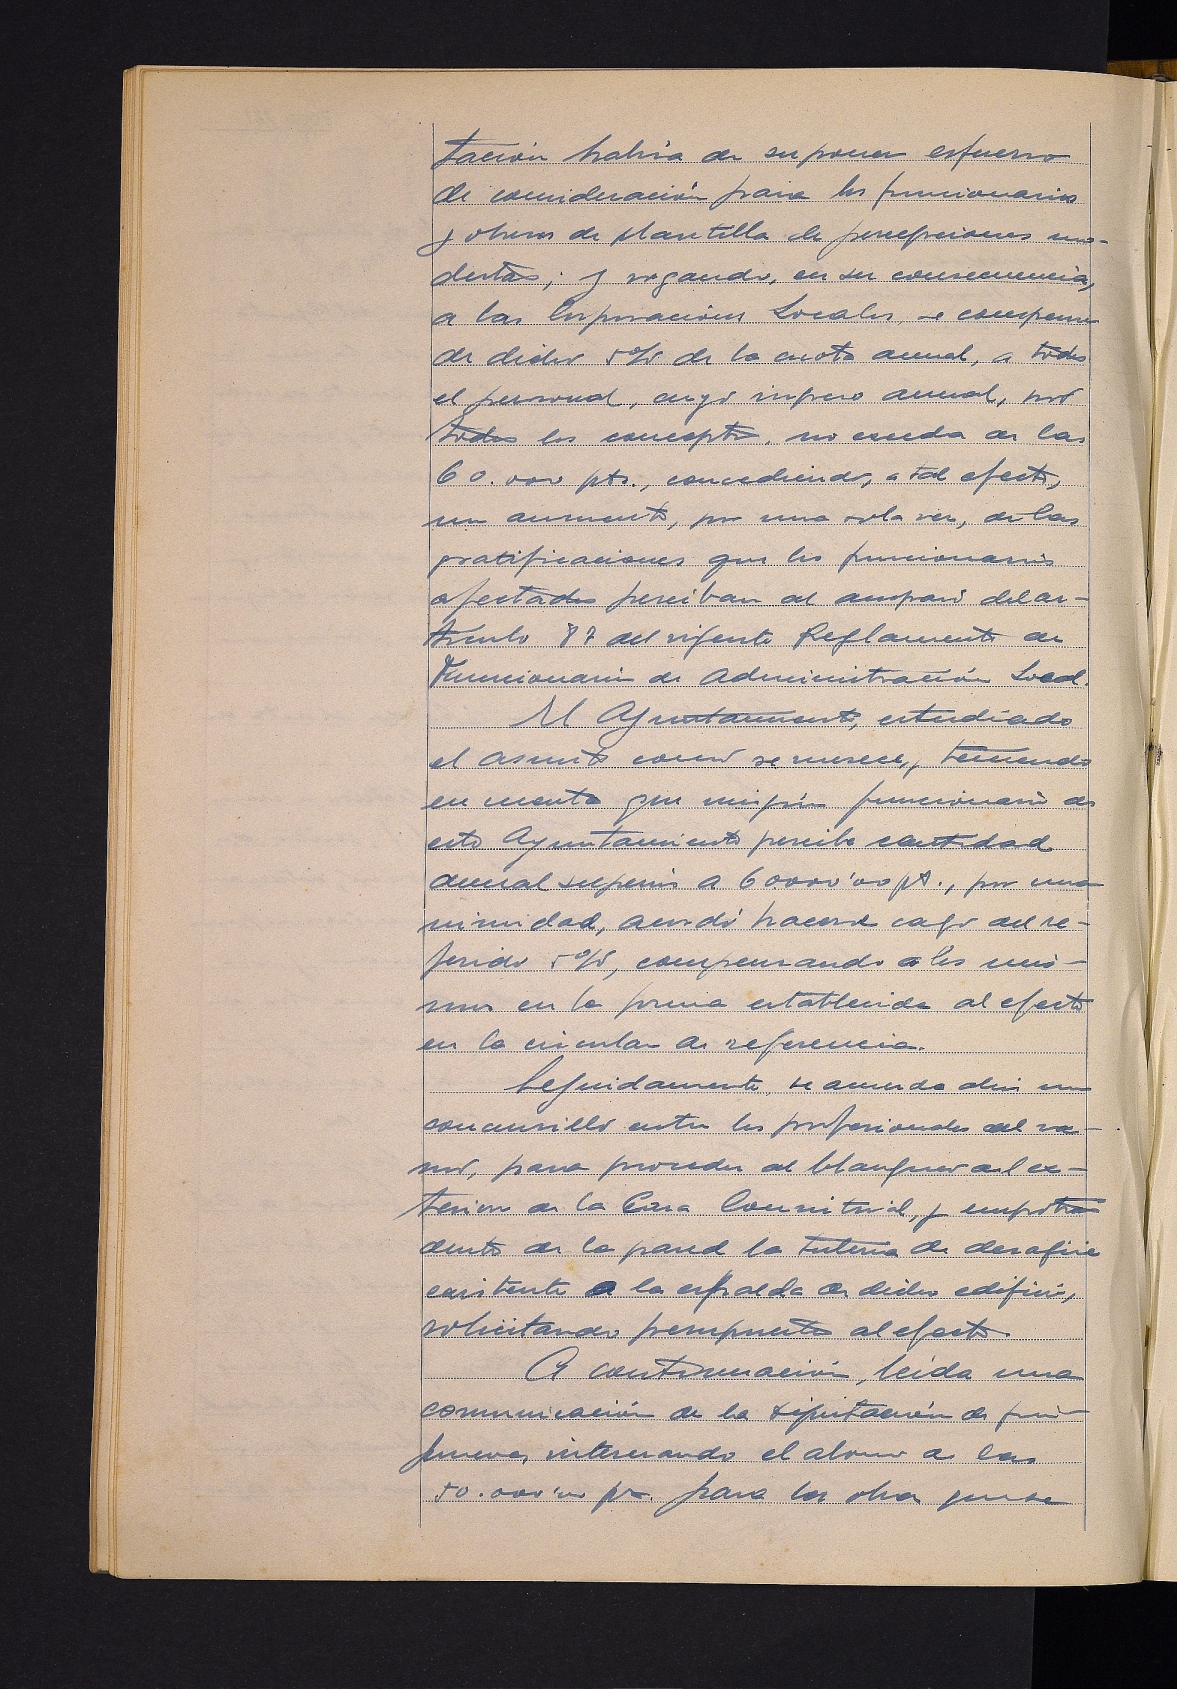 tación habría de suponer esfuerzo
de consideración para los funcionarios
y obreros de plantilla de percepciones mo-
destas; y rogando, en su consecuencia,
a las Corporaciones Locales, se compense
de dicho 5% de la cuota anual, a todo
el personal, cuyo ingreso anual, por
todos los conceptos, no exceda de las
60.000 pts., concediendo, a tal efecto,
un aumento, por una sola vez, de las
gratificaciones que los funcionarios
afectados perciban al amparo del ar-
tículo 87 del vigente Reglamento de
Funcionarios de Administración Local.
El Ayuntamiento, estudiado
el asunto como se merece, y teniendo
en cuenta que ningún funcionario de
este Ayuntamiento percibe cantidad
anual superior a 60000'00 pts., por una
nimidad, acordó hacerse cargo del re-
ferido 5%, compensando a los mis-
mos en la forma establecida al efecto
en la circular de referencia.
Seguidamente, se acuerda abrir un
concursillo entre los profesionales del ra-
mo, para proceder al blanqueo del ex-
terior de la Casa Consistorial, y empotra
dentro de la pared la tubería de desagüe
existente a la espalda de dicho edificio,
solicitando presupuesto al efecto.
A continuación, leída una
comunicación de la Diputación de
interesando el abono de las
50.000'00 pts. para las obras que se